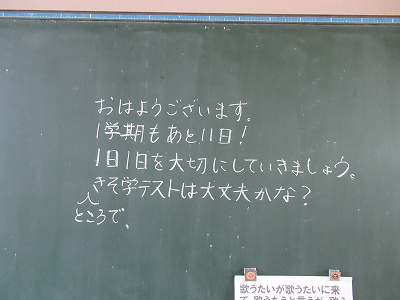 おはようございます。
1学期もあと11日!
1日1日を大切にしていきましょう。
きそ学テストは大丈夫かな?
ところで、
歌うたいが歌うたいに来
て 歌うたえと言うが 歌う